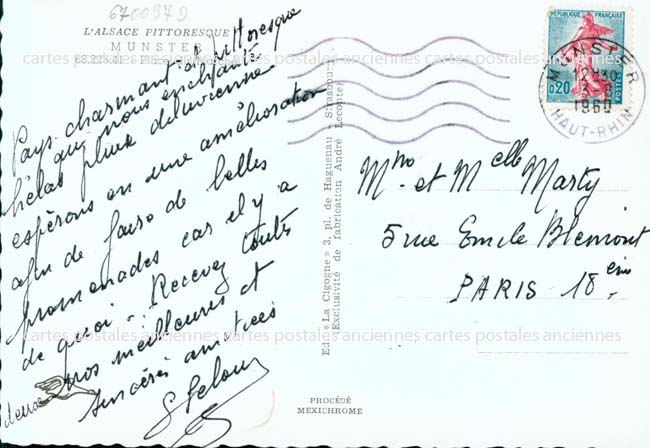 670097D
L'ALSACE PITTORESQUE
MUNSTER
Pays charmant et pittoresque
qui nous enchante
hélas pluie diluvienne
espérons en une amélioration
afin de faire de belles
promenades car il y a
de quoi - Recevez toutes
nos meilleures et
sincères amitiés
Edit. « La Cigogne » 3, pl. de Haguenau - Strasbourg
Exclusivité de fabrication André Leconte
PROCÉDÉ
MEXICHROME
RÉPUBLIQUE FRANÇAISE
0,20
POSTES
MUNSTER
12H30
3-8
1960
HAUT-RHIN
Mme et Melle Marty
5 rue Emile Blémont
PARIS 18 ème
cartes postales anciennes cartes postales anciennes cartes postales anciennes
cartes postales anciennes cartes postales anciennes cartes postales anciennes